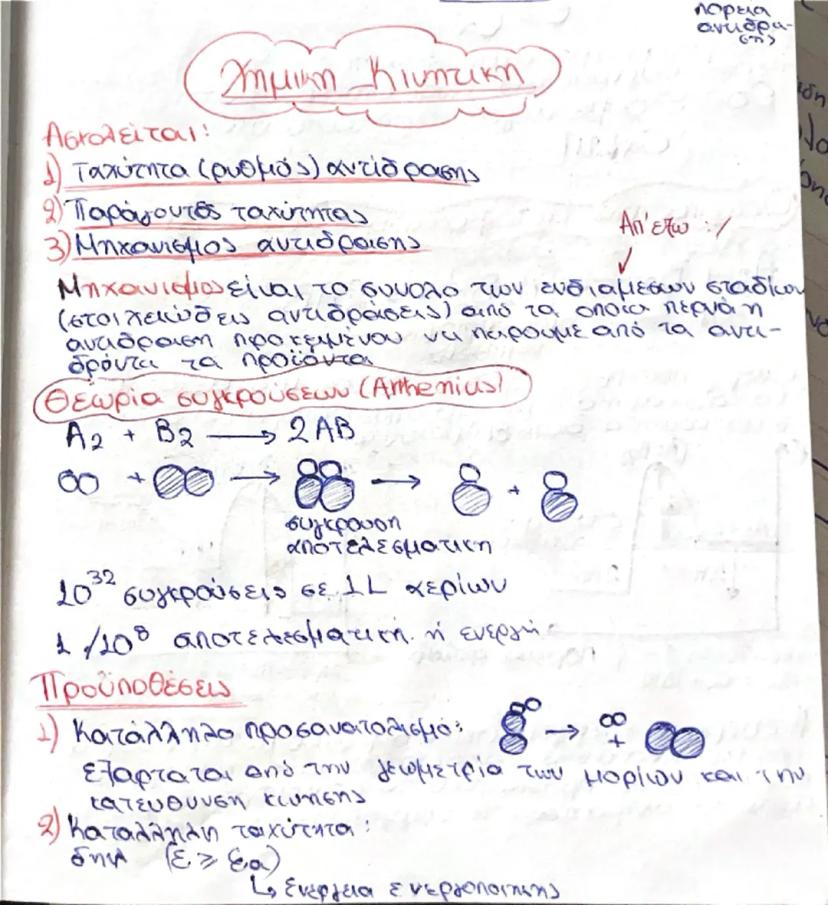 πορεία
αντιδρα-
σης
Χημικη Κινητικη
Ασχολείται:
1) Ταχύτητα (ρυθμός) αντίδρασης
2) Παράγοντες ταχύτητας
3) Μηχανισμος αντιδρασης
Απ' εξω :/
Μηχανισμος είναι το συνολο των ενδιαμέσων σταδίων
(στοιχειώδεις αντιδράσεις) από τα οποία περνά η
αντιδραση προκειμένου να πάρουμε από τα αντι-
δρόντα τα προϊόντα
Θεωρία συγκρούσεων (Arrhenius)
A2 + B2 → 2AB
+ → → +
συγκρουση
αποτελεσματικη
10^32 συγκρούσεις σε 1L αερίων
1/10^8 αποτελεσματική ή ενεργή
Προϋποθέσεις
1) Κατάλληλο προσανατολισμό: → +
εξαρταται από την γεωμετρία των μορίων και την
κατευθυνση κίνησης
2) Καταλληλη ταχύτητα:
δηλ (ε ≥ εa)
↳ ενεργεια ενεργοποιησης